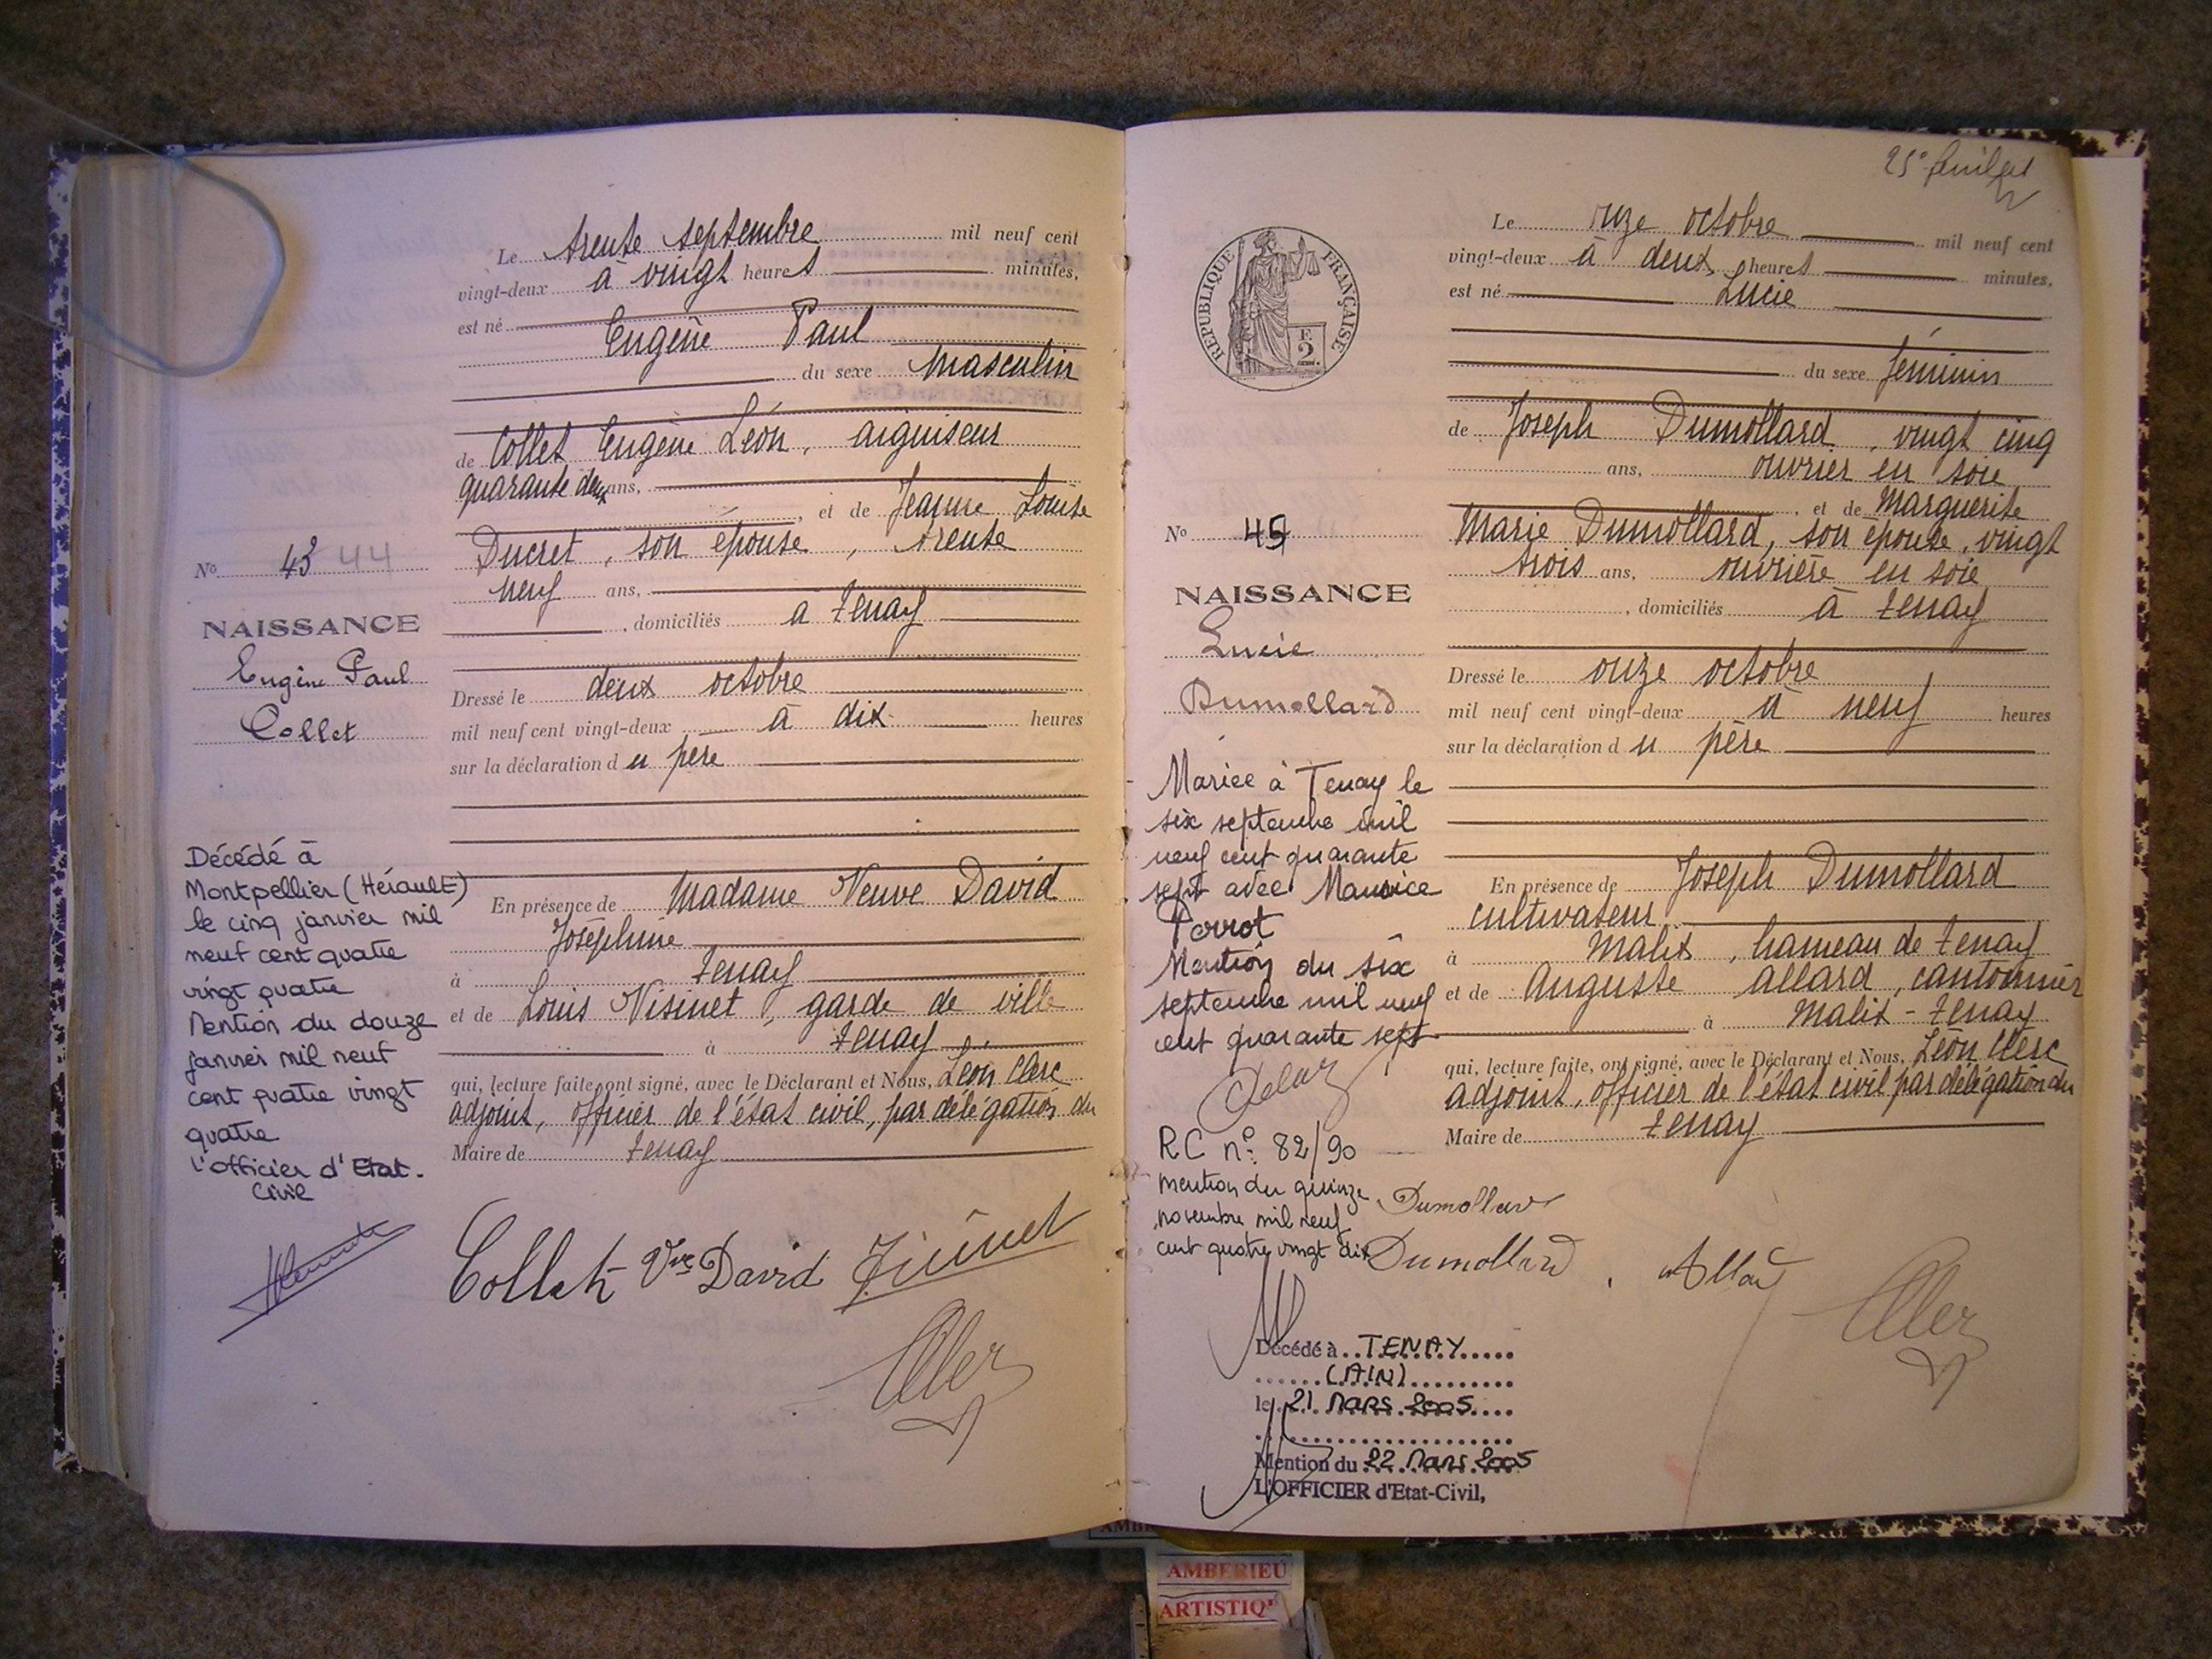 Le trente septembre mil neuf cent
vingt-deux à vingt heures minutes,
est né
Eugène Paul
du sexe masculin
de Collet Eugène Léon, aiguiseur
quarante deux ans,
, et de Jeanne Louise
Ducret, son épouse, trente
neuf ans,
, domiciliés à Tenay
Dressé le deux octobre
mil neuf cent vingt-deux à dix heures
sur la déclaration du père
En présence de Madame Veuve David
Joséphine
à Tenay
et de Louis Visinet, garde de ville
à Tenay
qui, lecture faite, ont signé, avec le Déclarant et Nous, Léon Clerc
adjoint, officier de l'état civil, par délégation du
Maire de Tenay
Collet Vve David
No 43 44
NAISSANCE
Eugène Paul
Collet
Décédé à
Montpellier (Hérault)
le cinq janvier mil
neuf cent quatre
vingt quatre
Mention du douze
janvier mil neuf
cent quatre vingt
quatre
l'officier d'Etat-
Civil
25e feuillet
RÉPUBLIQUE FRANÇAISE
2 F.
Le onze octobre mil neuf cent
vingt-deux à deux heures minutes,
est né Lucie
du sexe féminin
de Joseph Dumollard, vingt cinq
ans, ouvrier en soie
, et de Marguerite
Marie Dumollard, son épouse, vingt
trois ans, ouvrière en soie
, domiciliés à Tenay
Dressé le onze octobre
mil neuf cent vingt-deux à neuf heures
sur la déclaration du père
En présence de Joseph Dumollard
cultivateur
à Malix, hameau de Tenay
et de Auguste Allard, cantonnier
à Malix-Tenay
qui, lecture faite, ont signé, avec le Déclarant et Nous, Léon Clerc
adjoint, officier de l'état civil par délégation du
Maire de Tenay
Dumollard
Dumollard Allard
No 45
NAISSANCE
Lucie
Dumollard
Mariée à Tenay le
six septembre mil
neuf cent quarante
sept avec Maurice
Perrot
Mention du six
septembre mil neuf
cent quarante sept
RC n° 82/90
mention du quinze
novembre mil neuf
cent quatre vingt dix
Décédé à TENAY
(AIN)
le 21 Mars 2005
Mention du 22 Mars 2005
L'OFFICIER d'Etat-Civil,
AMBERIEU
ARTISTIQ